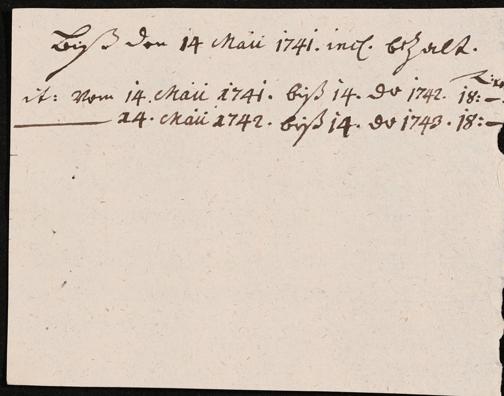 Biß den 14 Maii 1741. incl. bezalt.
it: Vom 14. Maii 1741. biß 14. do 1742. 18:-
14. Maii 1742. biß 14. do 1743. 18:-